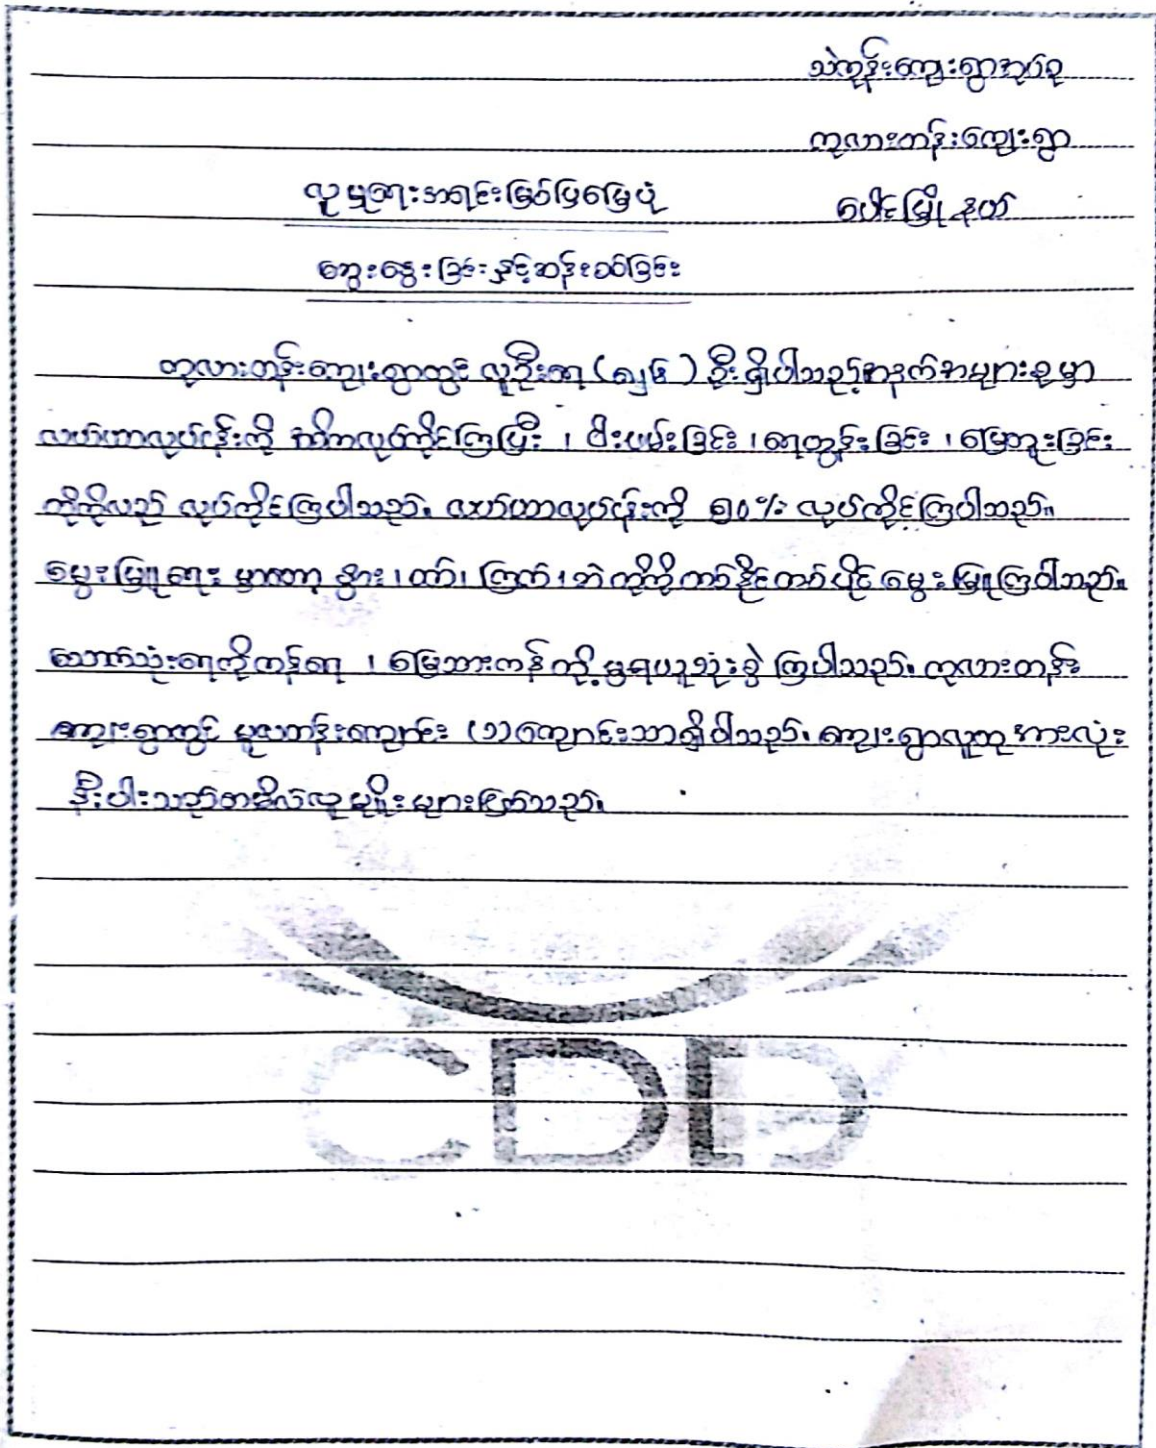 သဲကုန်းကျေးရွာအုပ်စု
ကုလားတန်းကျေးရွာ
လူမှုရေးအရင်းမြစ်ပြမြေပုံ
ပေါင်မြို့နယ်
ဆွေးနွေးခြင်းနှင့်ဆန်းစစ်ခြင်း
ကုလားတန်းကျေးရွာတွင် လူဦးရေ ဦးရှိပါသည့်အနက်အများစုမှာ
လယ်ယာလုပ်ငန်းကို အဓိကလုပ်ကိုင်ကြပြီး ၊ ဝါးဖမ်းခြင်း ၊ ရေတွန်းခြင်း ၊ မြေတူးခြင်း
တို့ကိုလည် လုပ်ကိုင်ကြပါသည်။ လယ်ယာလုပ်ငန်းကို ၅၀% လုပ်ကိုင်ကြပါသည်။
မွေးမြူရေးမှာတော့ နွား ၊ ဝက် ၊ ကြက် ၊ ဘဲ တို့ကို တစ်နိုင်တစ်ပိုင် မွေးမြူကြပါသည်။
သောက်သုံးရေကိုကန်ရေ ၊ မြေသားကန်တို့မှရယူသုံးစွဲကြပါသည်။ ကုလားတန်း
ကျေးရွာတွင် မူလတန်းကျောင်း (၁) ကျောင်းသာရှိပါသည်။ ကျေးရွာလူထုအားလုံး
နီးပါးသည်တမီလ်လူမျိုးများဖြစ်သည်။
CDD